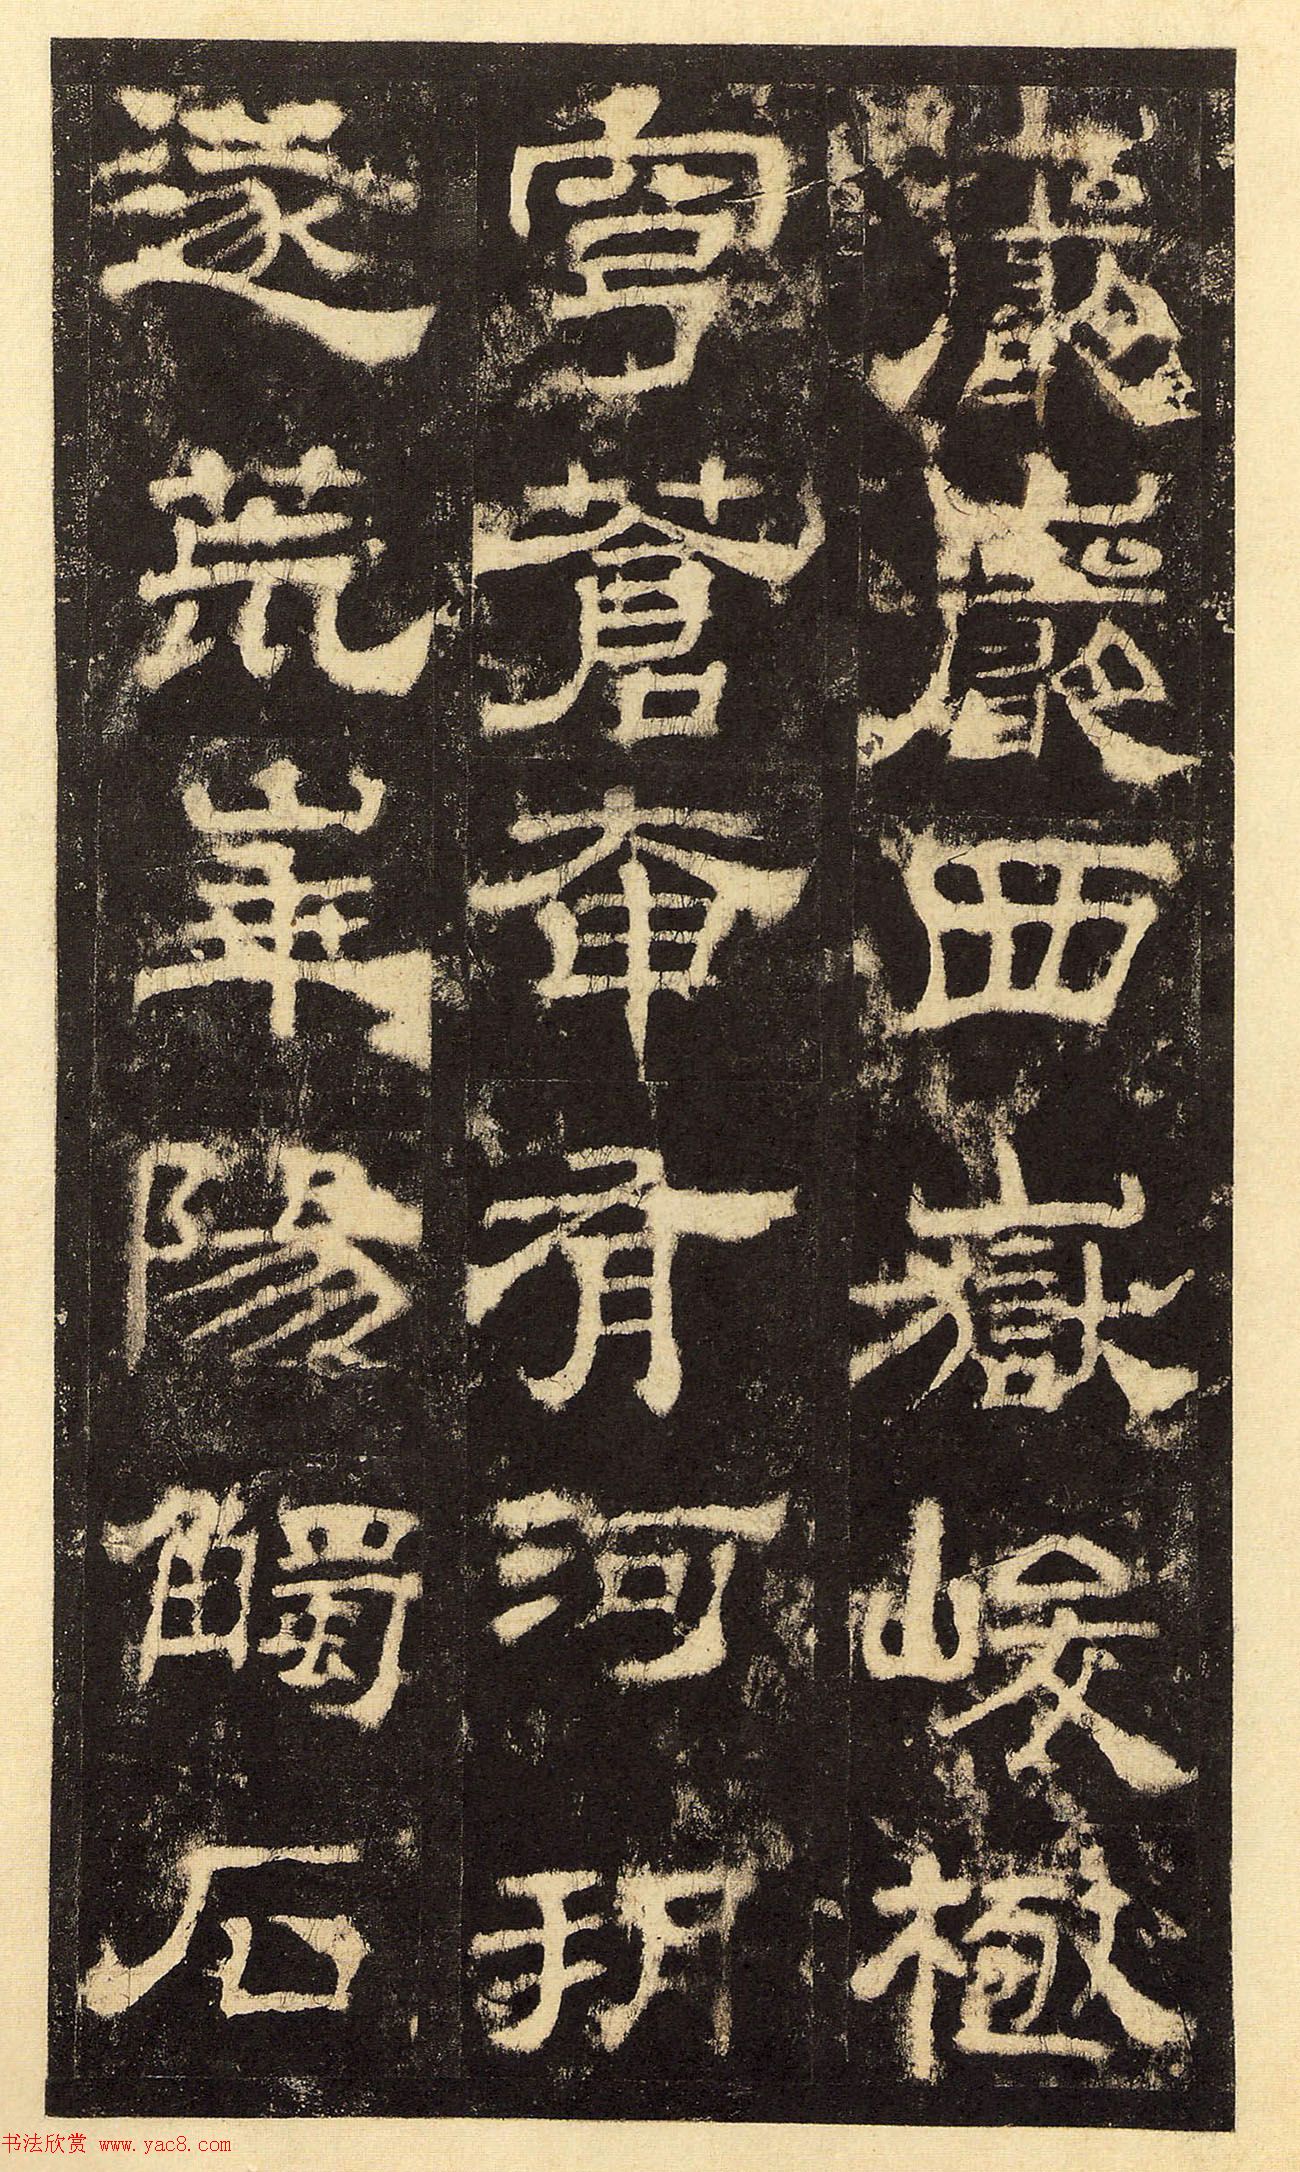 巖巖西嶽峻極
穹蒼奄有河朔
遂荒華陽觸石
书法欣赏 www.yac8.com